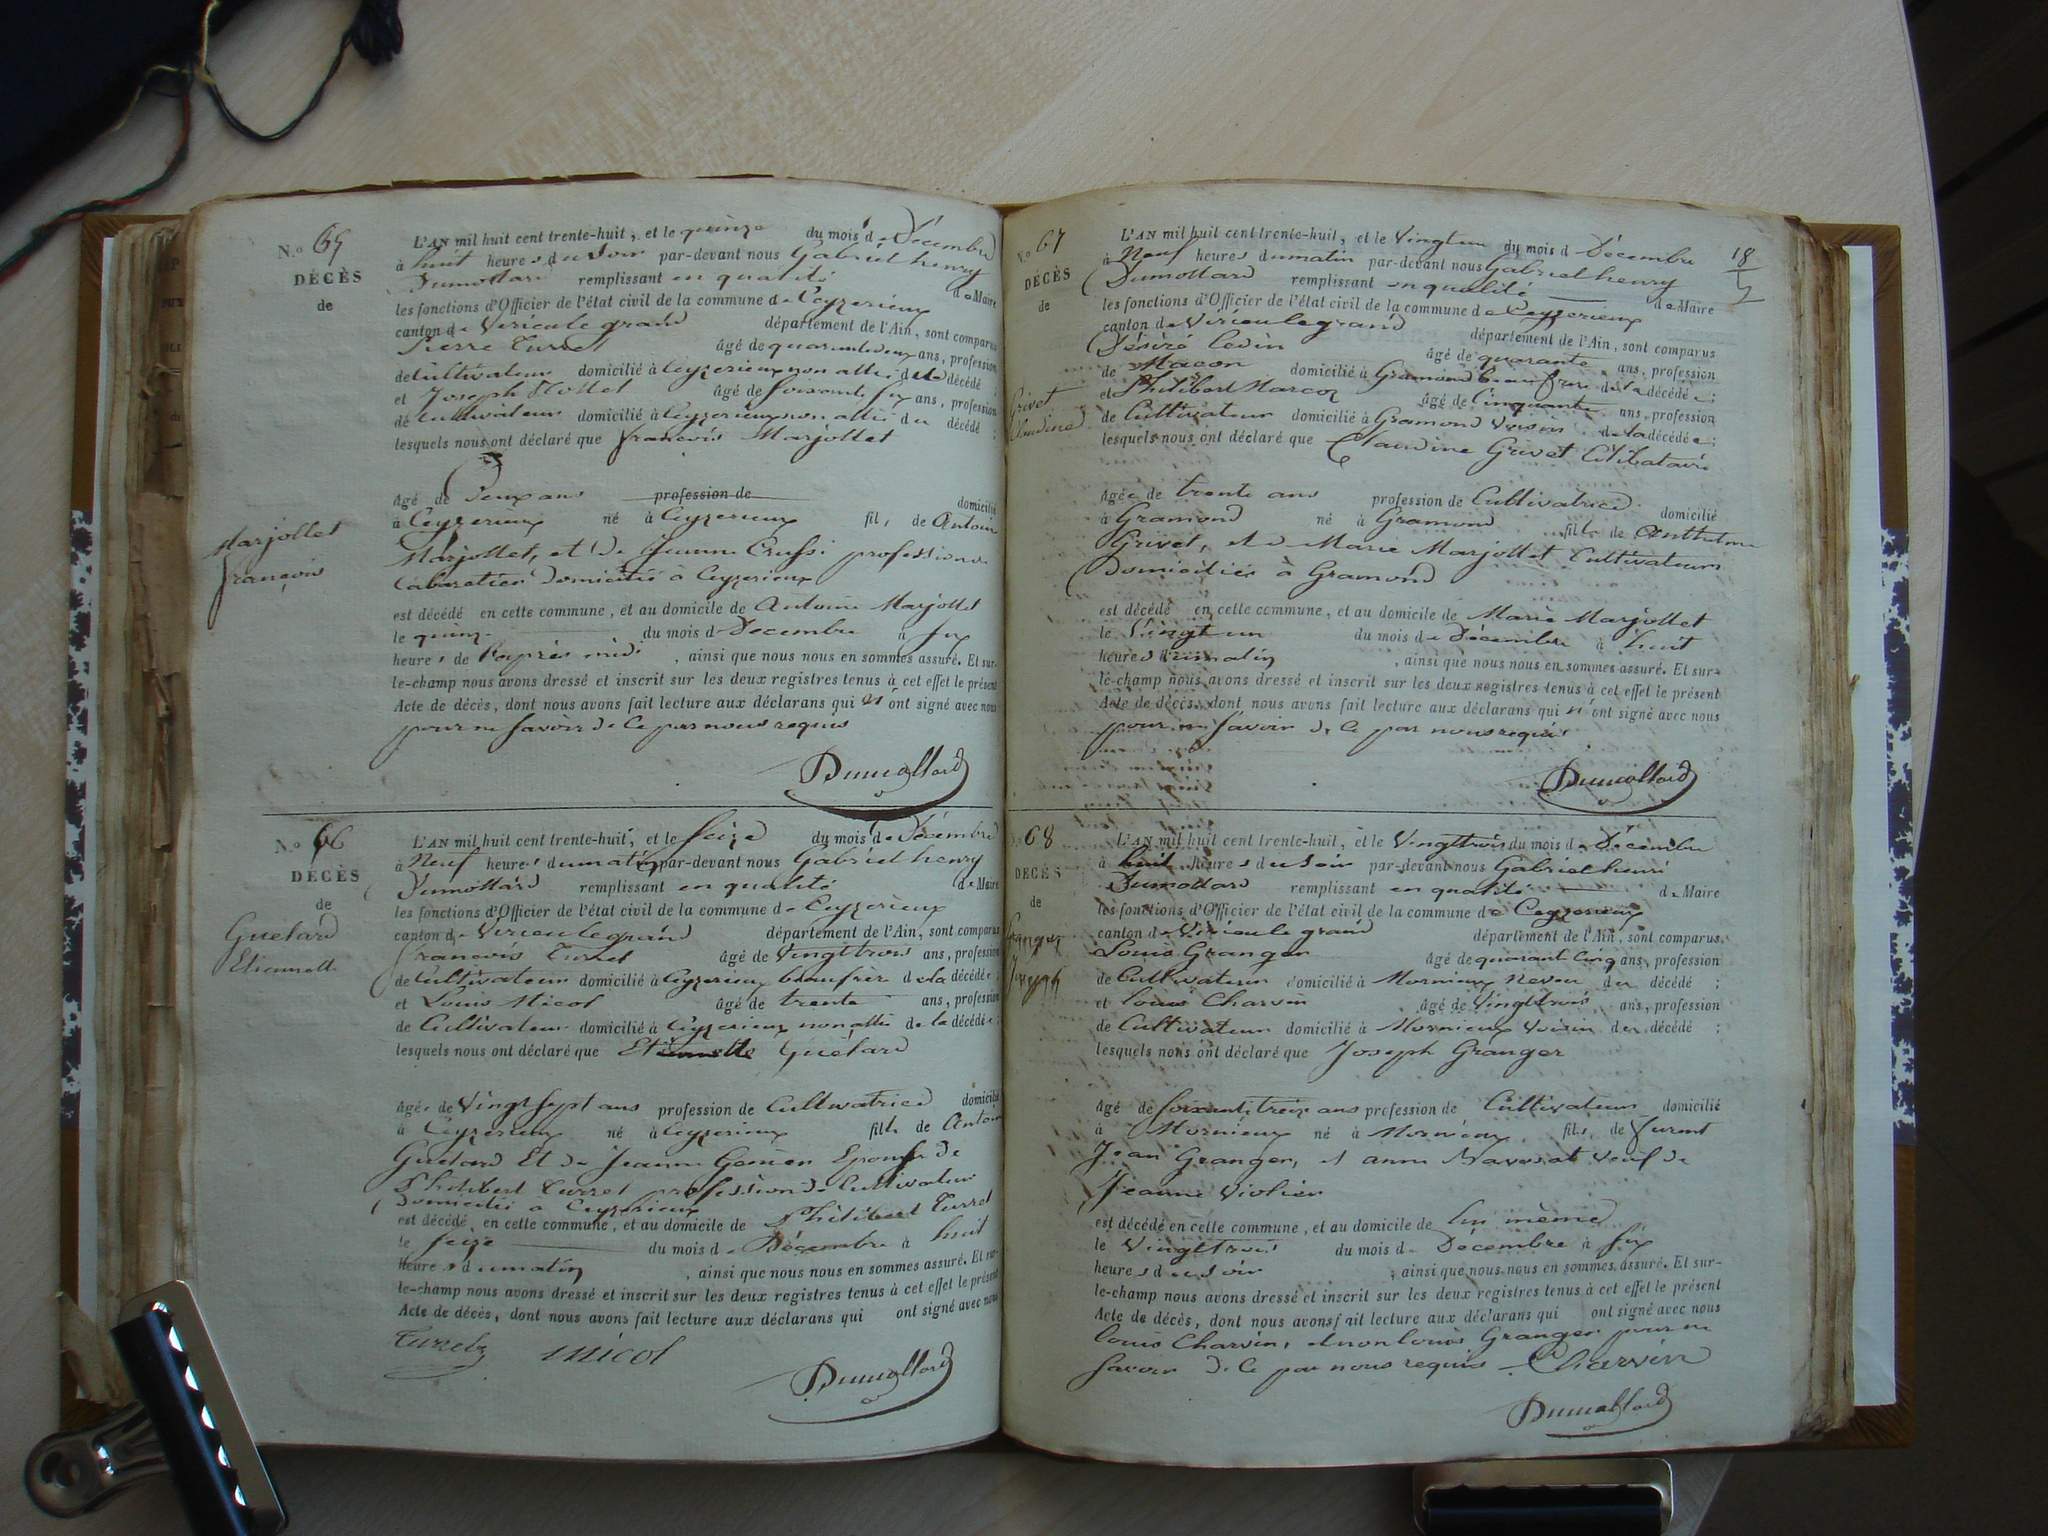 No 65
DÉCÈS
de
Marjollet
françois
L'AN mil huit cent trente-huit, et le quinze du mois de Décembre
à huit heures du soir par-devant nous Gabriel henry
Dumollard remplissant en qualité de Maire
les fonctions d'Officier de l'état civil de la commune de Ceyzerieux
canton de Virieu le grand département de l'Ain, sont comparus
Pierre Turrel âgé de quarante deux ans, profession
de Cultivateur domicilié à Ceyzerieux non allié du décédé
et Joseph âgé de soixante six ans, profession
de Cultivateur domicilié à Ceyzerieux non allié du décédé ;
lesquels nous ont déclaré que françois Marjollet
âgé de Deux ans profession de domicilié
à Ceyzerieux né à Ceyzerieux fils de Antoine
Marjollet, et de Jeanne profession de
Laboratier Domicilié à Ceyzerieux
est décédé en cette commune, et au domicile de Antoine Marjollet
le quinze du mois de Decembre à six
heures de l'après midi, ainsi que nous nous en sommes assuré. Et sur-
le-champ nous avons dressé et inscrit sur les deux registres tenus à cet effet le présent
Acte de décès, dont nous avons fait lecture aux déclarans qui n'ont signé avec nous
pour ne savoir de ce par nous requis
Dumollard
No 66
DÉCÈS
de
Guetard
Etiennette
L'AN mil huit cent trente-huit, et le seize du mois de Décembre
à Neuf heures du matin par-devant nous Gabriel henry
Dumollard remplissant en qualité de Maire
les fonctions d'Officier de l'état civil de la commune de Ceyzerieux
canton de Virieu le grand département de l'Ain, sont comparus
françois Turrel âgé de Vingt trois ans, profession
de Cultivateur domicilié à Ceyzerieux beaufrère de la décédée
et Louis Micol âgé de trente ans, profession
de Cultivateur domicilié à Ceyzerieux non allié de la décédée ;
lesquels nous ont déclaré que Etiennette Guétard
âgée de Vingt sept ans profession de Cultivatrice domicilié
à Ceyzerieux né à Ceyzerieux fille de Antoine
Guetard Et de Jeanne Epouse de
Philibert Turrel profession de Cultivateur
Domicilié à Ceyzerieux
est décédé en cette commune, et au domicile de Philibert Turrel
le seize du mois de Décembre à huit
heures du matin, ainsi que nous nous en sommes assuré. Et sur-
le-champ nous avons dressé et inscrit sur les deux registres tenus à cet effet le présent
Acte de décès, dont nous avons fait lecture aux déclarans qui ont signé avec nous
Turrel Micol
Dumollard
18
No 67
DÉCÈS
de
Grivet
Claudine
L'AN mil huit cent trente-huit, et le Vingt un du mois de Décembre
à Neuf heures du matin par-devant nous Gabriel henry
Dumollard remplissant en qualité de Maire
les fonctions d'Officier de l'état civil de la commune de Ceyzerieux
canton de Virieu le grand département de l'Ain, sont comparus
Désiré âgé de quarante ans, profession
de Macon domicilié à Gramond beaufrère de la décédée ;
et Philibert âgé de Cinquante ans, profession
de Cultivateur domicilié à Gramond Voisin de la décédée ;
lesquels nous ont déclaré que Claudine Grivet Célibataire
âgée de trente ans profession de Cultivatrice domicilié
à Gramond né à Gramond fille de Anthelme
Grivet, et de Marie Marjollet Cultivateurs
Domiciliés à Gramond
est décédé en cette commune, et au domicile de Marie Marjollet
le Vingt un du mois de Décembre à huit
heures du matin, ainsi que nous nous en sommes assuré. Et sur-
le-champ nous avons dressé et inscrit sur les deux registres tenus à cet effet le présent
Acte de décès, dont nous avons fait lecture aux déclarans qui n'ont signé avec nous
pour ne savoir de ce par nous requis
Dumollard
No 68
DÉCÈS
de
Granger
Joseph
L'AN mil huit cent trente-huit, et le Vingt trois du mois de Décembre
à huit heures du soir par-devant nous Gabriel henri
Dumollard remplissant en qualité de Maire
les fonctions d'Officier de l'état civil de la commune de Ceyzerieux
canton de Virieu le grand département de l'Ain, sont comparus
Louis Granger âgé de quarant Cinq ans, profession
de Cultivateur domicilié à Mornieux Neveu du décédé ;
et Louis Charvin âgé de Vingt trois ans, profession
de Cultivateur domicilié à Mornieux Voisin du décédé ;
lesquels nous ont déclaré que Joseph Granger
âgé de soixante treize ans profession de Cultivateur domicilié
à Mornieux né à Mornieux fils de furent
Jean Granger, et anne Veuf de
Jeanne Violien
est décédé en cette commune, et au domicile de lui même
le Vingt trois du mois de Décembre à six
heures du soir, ainsi que nous nous en sommes assuré. Et sur-
le-champ nous avons dressé et inscrit sur les deux registres tenus à cet effet le présent
Acte de décès, dont nous avons fait lecture aux déclarans qui ont signé avec nous
louis Charvin, et non louis Granger pour ne
savoir de ce par nous requis Charvin
Dumollard